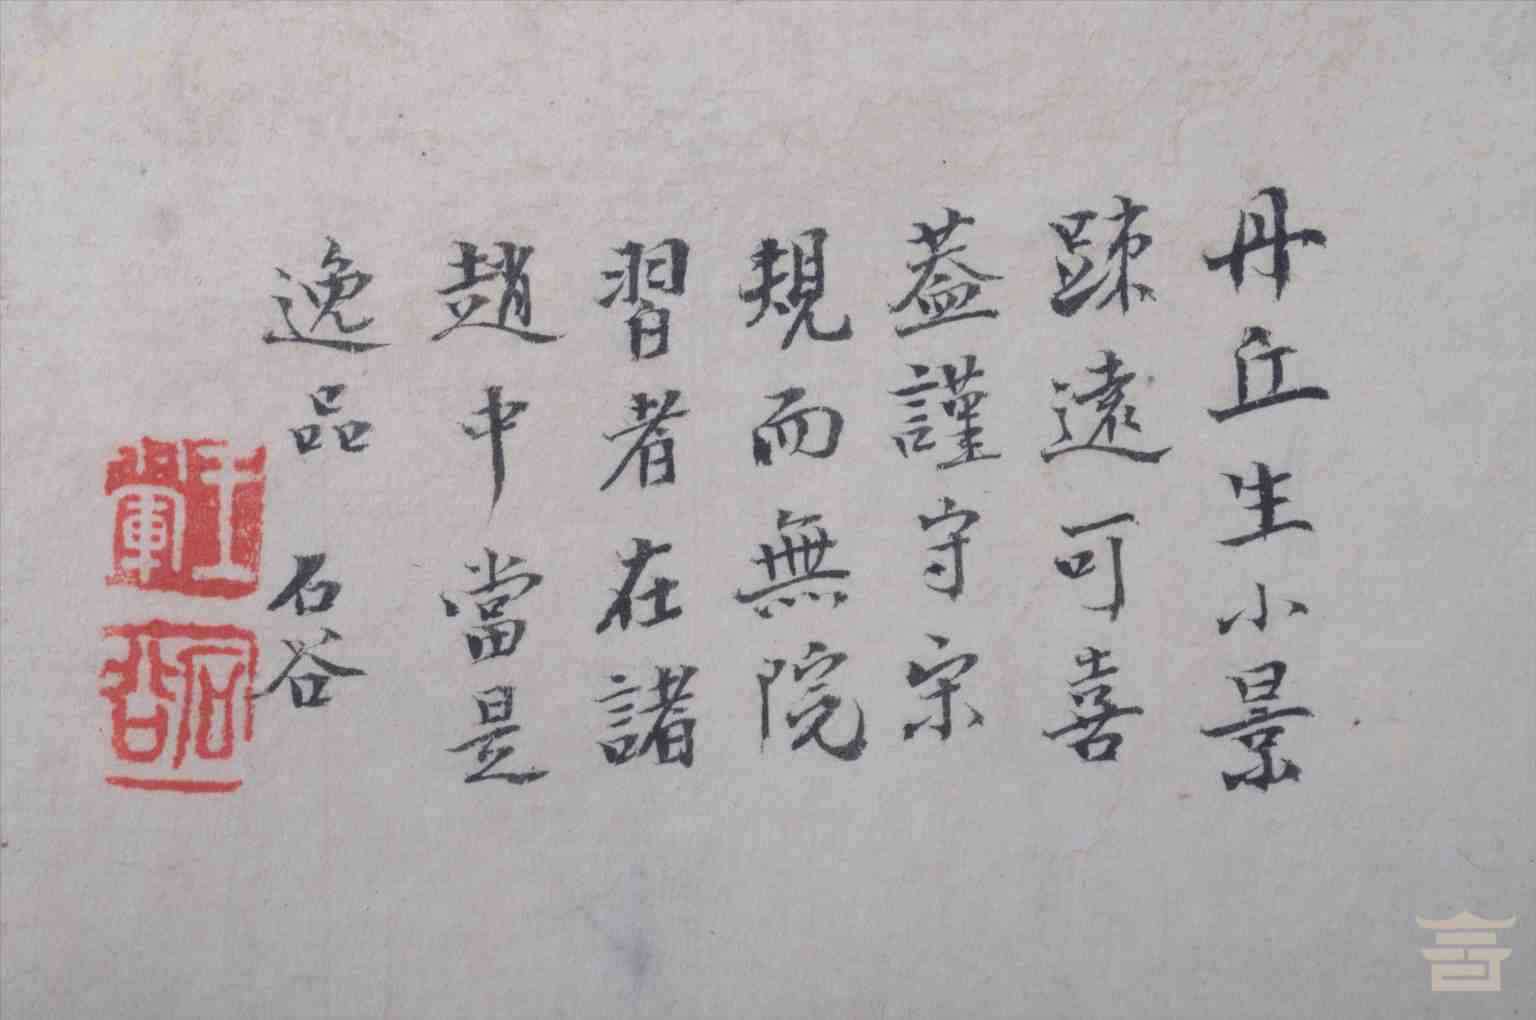 丹丘生小景
踈遠可喜
葢謹守宋
規而無院
習者在諸
趙中當是
逸品 石谷
王翬
石谷